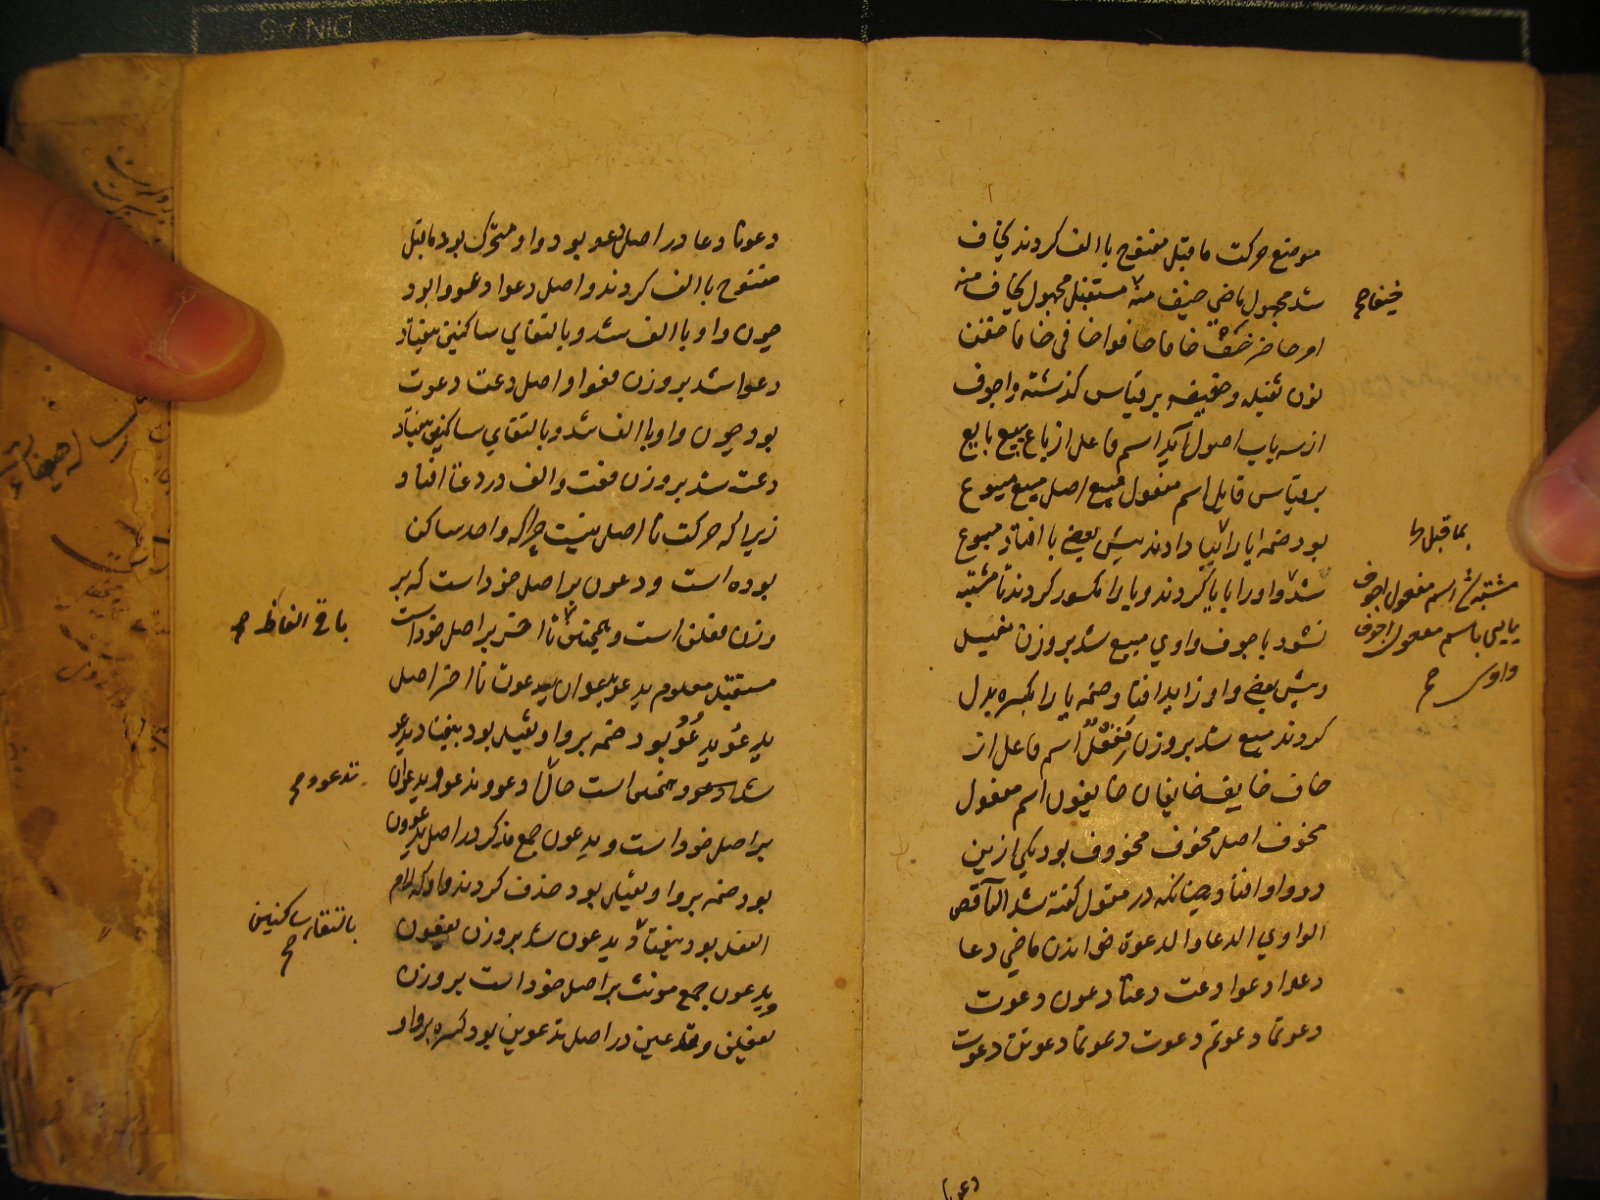 موضع حرکت ماقبل مفتوح با الف کردند یخاف
شد مجهول ماضی خیف منه مستقبل مجهول یخاف منه
امر حاضر خف خافا خافوا خافی خافا خفن
نون ثقیله و خفیفه بر قیاس گذشته و اجوف
از سه باب اصول آید اسم فاعل از باع یبیع بایع
بر قیاس قایل اسم مفعول مبیع اصل مبیع مبیوع
بود ضمه یا را بیا دادند پیش بعضی یا افتاد مبوع
شد واو را با یا کردند و با را مکسور کردند تا مشتبه
نشود باجوف واوی مبیع شد بر وزن مفیل
و پیش بعضی واو زاید افتاد و ضمه یا را بکسره بدل
کردند مبیع شد بر وزن مفعل اسم فاعل از
خاف خایف خایفان خایفون اسم مفعول
مخوف اصل مخوف مخووف بود یکی ازین
دو واو افتاد چنانکه در مقول گفته شد الناقص
الواوی الدعا و الدعوة خواندن ماضی دعا
دعوا دعوا دعت دعتا دعون دعوت
دعوتما دعوتم دعوت دعوتما دعوتن دعوت
خیفا صح
بماقبل
مشتبه اسم مفعول اجوف
یایی باسم مفعول اجوف
واوی صح
دعونا
دعونا دعا در اصل دعو بود واو متحرک بود ماقبل
مفتوح با الف کردند و اصل دعوا دعووا بود
چون واو با الف شد و بالتقای ساکنین بیفتاد
دعوا شد بر وزن فعوا و اصل دعت دعوت
بود چون واو با الف شد و بالتقای ساکنین بیفتاد
دعت شد بر وزن فعت و الف در دعتا افتاد
زیرا که حرکت تا اصل نیست چرا که واحد ساکن
بوده است و دعون بر اصل خود است که بر
وزن فعلن است و همچنین تا اخر بر اصل خود است
مستقبل معلوم یدعو یدعوان یدعون تا اخر اصل
یدعو یدعو بود ضمه بر واو ثقیل بود بیفتاد یدعو
شد و همچنین است حال ادعو و ندعو و یدعوان
بر اصل خود است و یدعون جمع مذکر در اصل یدعوون
بود ضمه بر واو ثقیل بود حذف کردند واو که لام
الفعل بود بیفتاد و یدعون شد بر وزن یفعون
و یدعون جمع مونث بر اصل خود است بر وزن
یفعلن و تدعین در اصل تدعوین بود کسره بر واو
باقی الفاظ صح
تدعو صح
بالتقاء ساکنین
صح